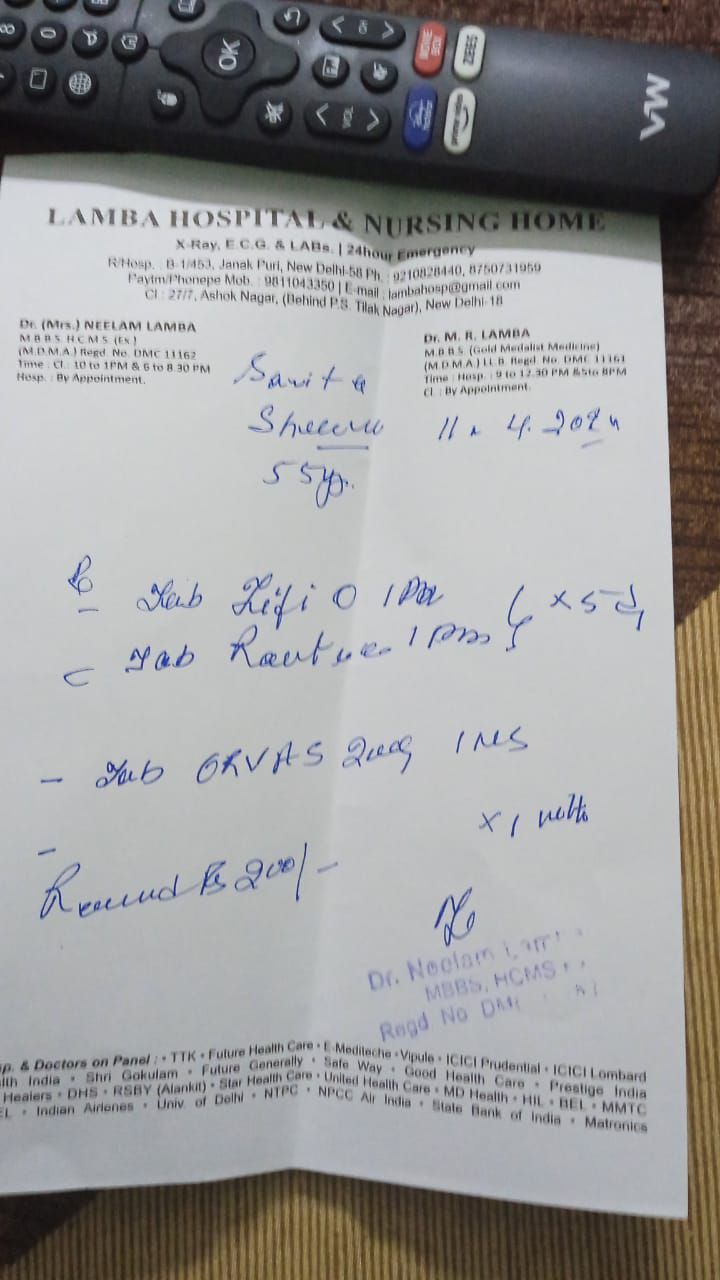 OK
CH
VOL
MOVIE BOX
ZEE5
prime video
VW
LAMBA HOSPITAL & NURSING HOME
X-Ray, E.C.G. & LABs. | 24hour Emergency
R/Hosp. : B-1/453, Janak Puri, New Delhi-58 Ph. : 9210828440, 8750731959
Paytm/Phonepe Mob. : 9811043350 | E-mail : lambahosp@gmail.com
Cl : 27/7, Ashok Nagar, (Behind P.S. Tilak Nagar), New Delhi-18
Dr. (Mrs.) NEELAM LAMBA
M.B.B.S. H.C.M.S. (Ex.)
(M.D.M.A.) Regd. No. DMC 11162
Time : Cl. : 10 to 1PM & 6 to 8.30 PM
Hosp. : By Appointment.
Dr. M. R. LAMBA
M.B.B.S. (Gold Medalist Medicine)
(M.D.M.A.) LL.B. Regd. No. DMC 11161
Time : Hosp. : 9 to 12.30 PM & 5to 8PM
Cl. : By Appointment.
Savita
55yr.
11. 4. 2024
Tab Zifi O 1
x 5 d
Tab 1
- Tab ORVAS 20mg 1 HS
x 1
Rs 200/-
Dr. Neelam
MBBS, HCMS
Regd No DM
p. & Doctors on Panel : • TTK • Future Health Care • E-Mediteche • Vipule • ICICI Prudential • ICICI Lombard
lth India • Shri Gokulam • Future Generally • Safe Way • Good Health Care • Prestige India
Healers • DHS • RSBY (Alankit) • Star Health Care • United Health Care • MD Health • HIL • BEL • MMTC
EL • Indian Airlenes • Univ. of Delhi • NTPC • NPCC Air India • State Bank of India • Matronics